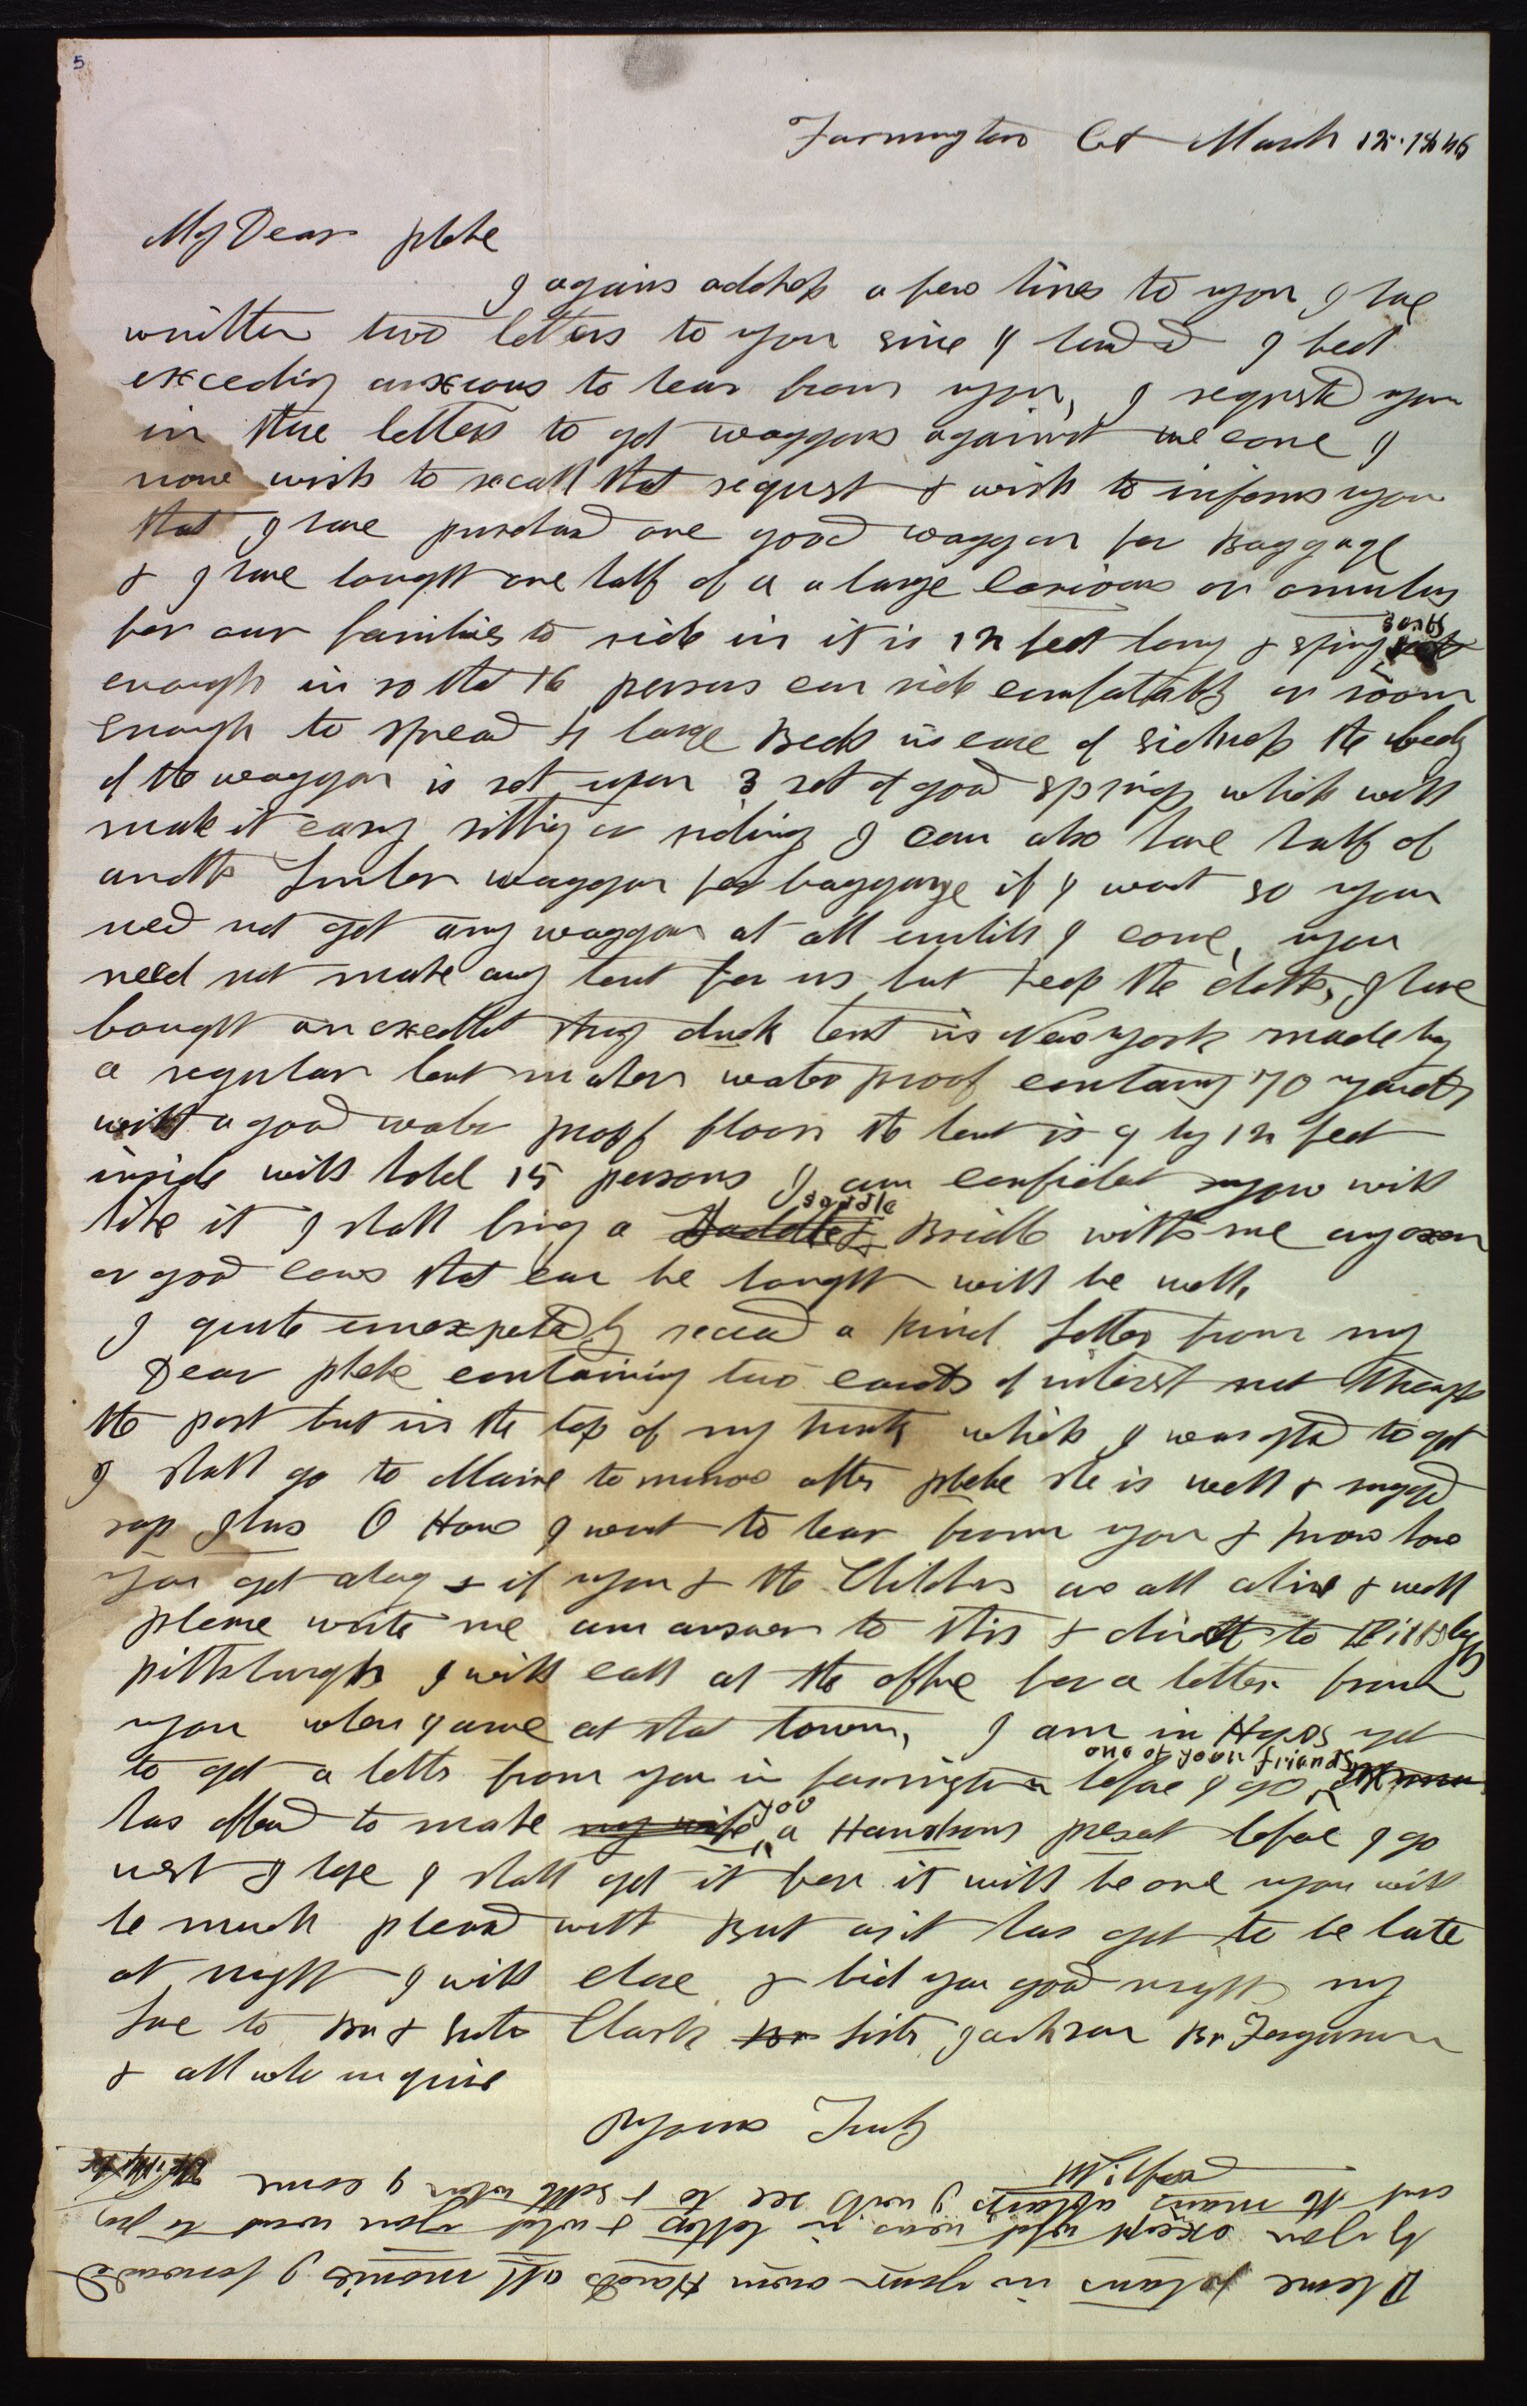 5
Farmington Ct March 12. 1846
My Dear phebe
I again address a few lines to you I have
written two letters to you since I landed I feel
exceeding anxious to hear from you, I requested you
in those letters to get waggons against we come I
now wish to recall that request & wish to inform you
that I have purchased one good waggon for Baggage
& I have bought one half of a a large or omnibus
for our families to ride in it is 12 feet long & springs Aras
enough in so that 16 persons can ride comfortably or room
enough to spread 4 large Beds in case of sickness the body
of the waggon is set upon 3 set of good springs which will
make it easy sitting or riding I can also have half of
another Lumber waggon for baggage if I want so you
need not get any waggon at all untill I come, you
need not make any tent for us but keep the cloth, I have
bought an excellent strong duck tent in New York made by
a regular tent maker water proof containing 70 yards
with a good water proof floor the tent is 9 by 12 feet
inside will hold 15 persons I am confident you will
like it I shall bring a Saddle & saddle Bridle with me any oxen
or good cows that can be bought will be well,
I quite unexpectedly received a kind Letter from my
Dear phebe containing two cards of interest not through
the post but in the top of my trunk which I was glad to get
I shall go to Maine tomorrow after phebe she is well & rugged
so I hear O How I want to hear from you & know how
you get along & if you & the Children are all alive & well
please write me an answer to this & direct to Pittsbgh
pittsburgh I will call at the office for a letter from
you when I arrive at that town, I am in Hopes yet
to get a letter from you in farmington before I go one of your friends
has offered to make my wife you a Handsome present before I go
west I hope I shall get it for it will be one you will
be much pleased with But as it has got to be late
at night I will close & bid you good night my
Love to Br & Sister Clark Br Sister Jackson Br Ferguson
& all who inquire
Yours Truly
Wilford
Please retain in your own Hands all monies I forward
to you except what was in letter & what you want to pay
out the main I will see to & settle when I come